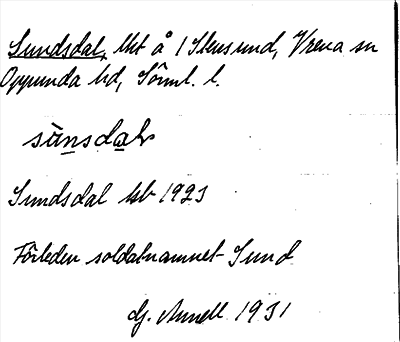 Sundsdal, lht å 1 Stensund, Vrena sn
Oppunda hd, Söml. l.
sùnsdaḷ
Sundsdal lsb 1923
Förleden soldatnamnet Sund
G. Annell 1931